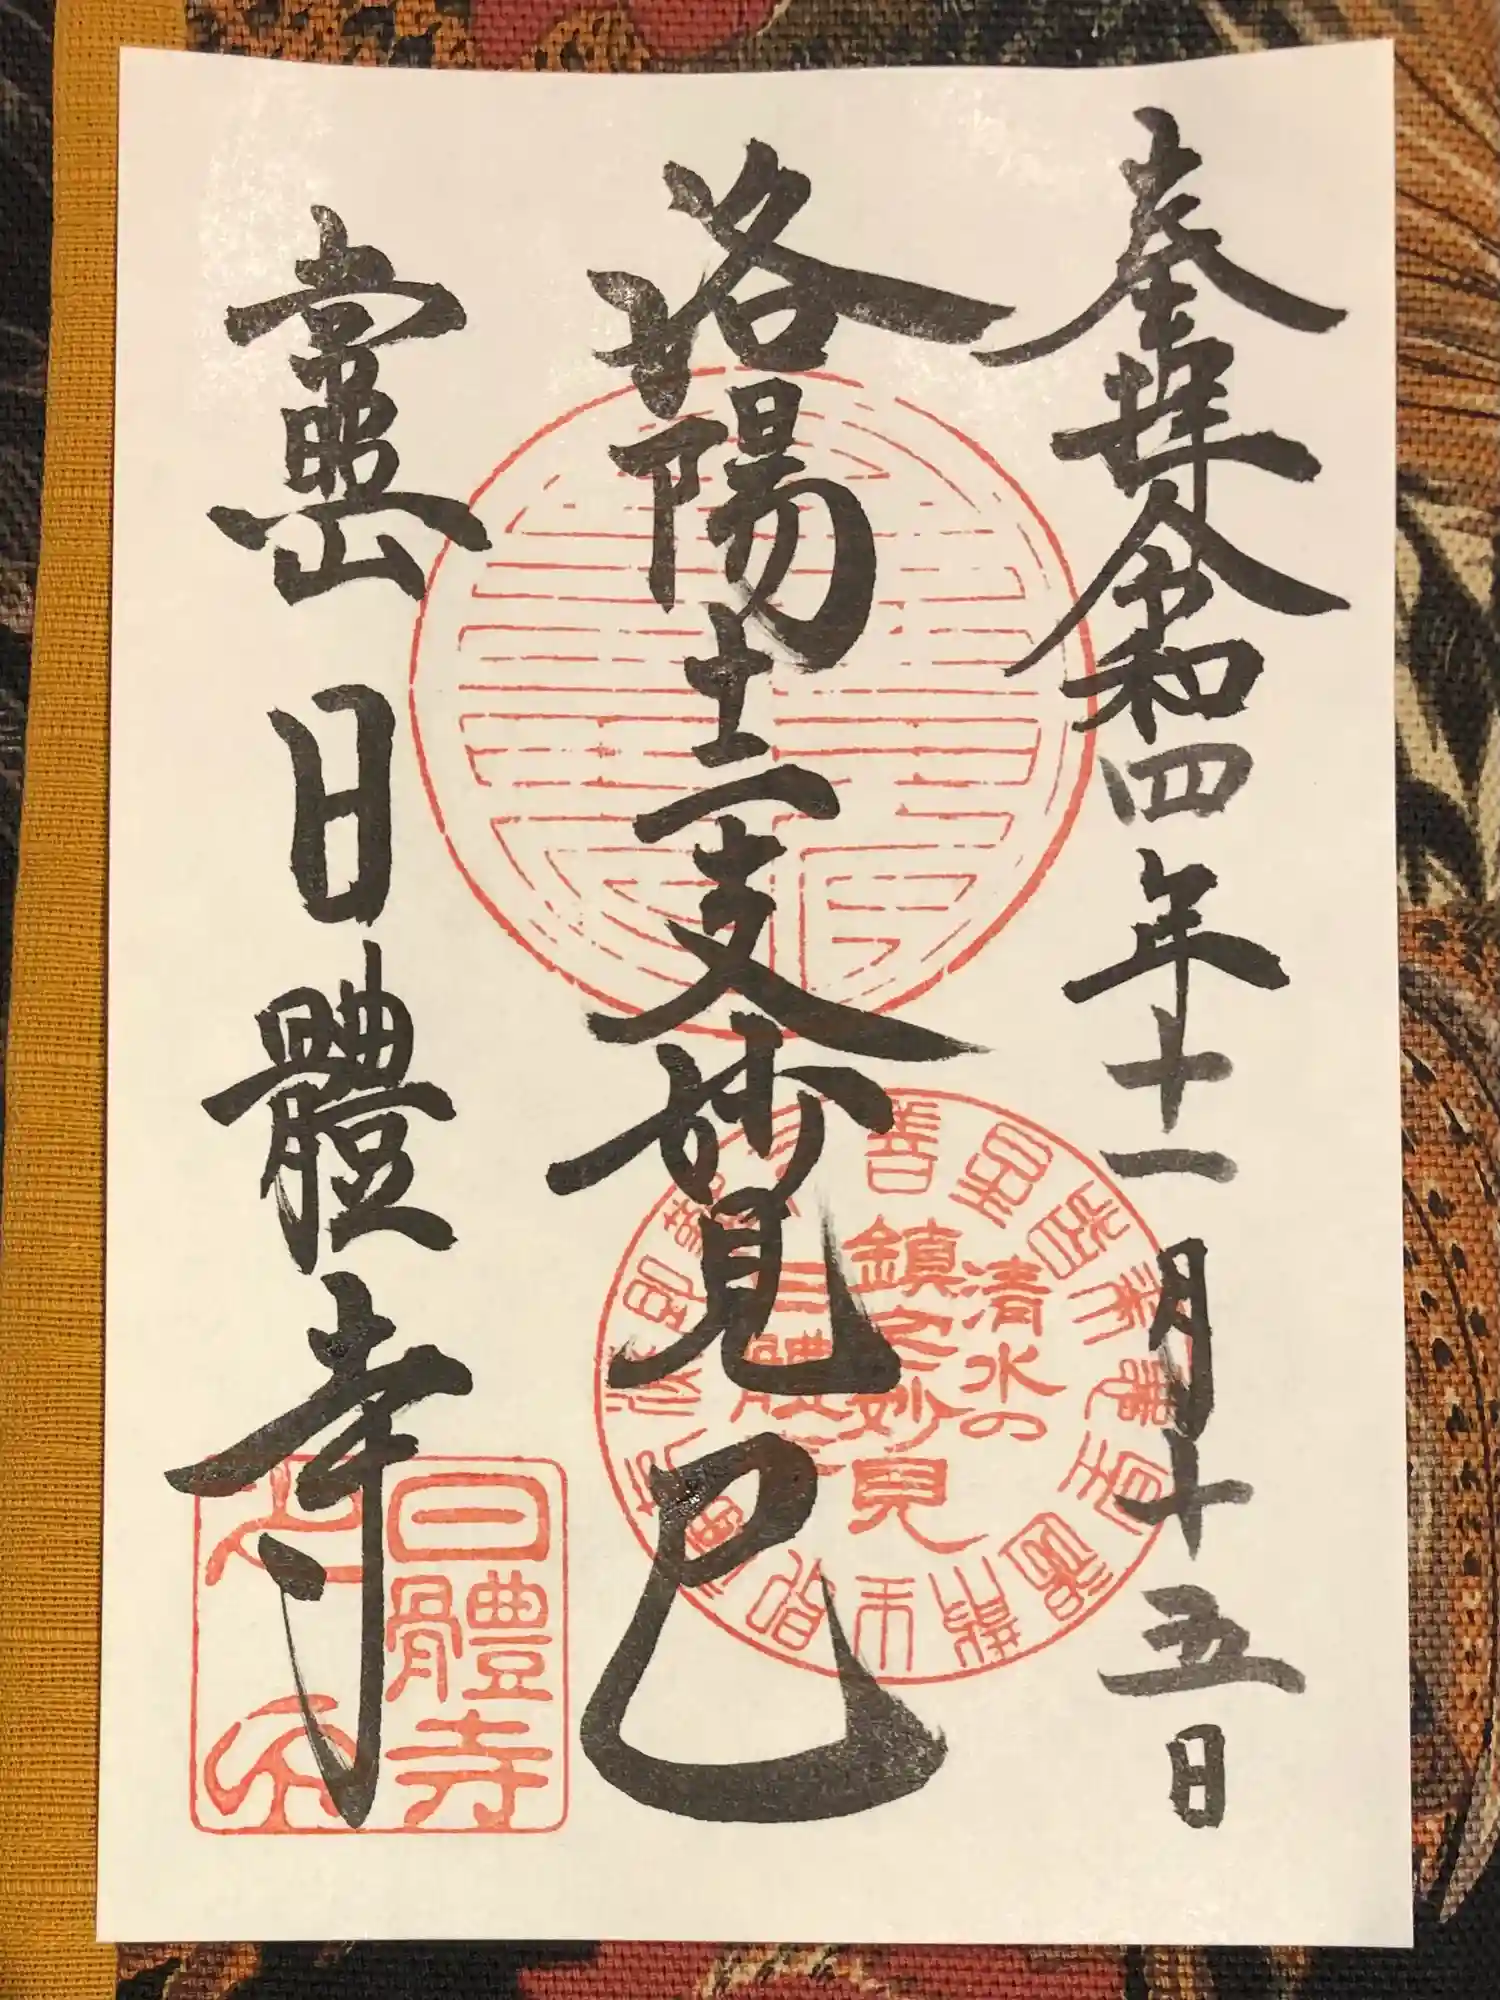 奉拝 令和四年十一月十五日
洛陽十二支妙見 巳
清水の
鎮宅妙見
日體寺
靈山 日體寺
日體寺